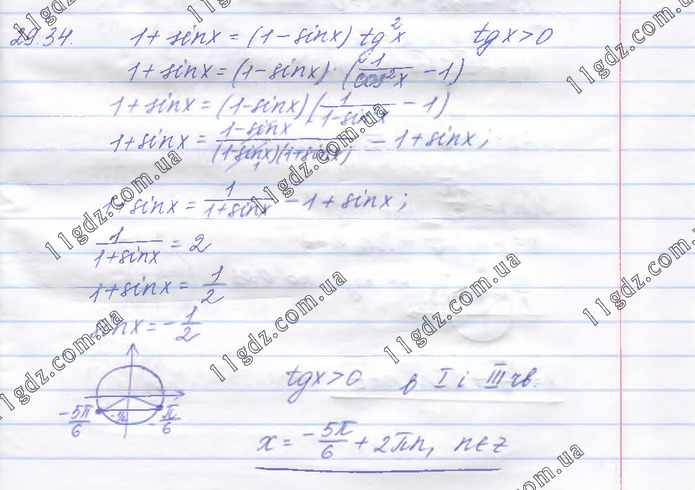 29.34. 1+sinx = (1-sinx) tg²x tgx>0
1+sinx = (1-sinx) · (1/cos²x - 1)
1+sinx = (1-sinx)(1/(1-sin²x) - 1)
1+sinx = (1-sinx)/((1-sinx)(1+sinx)) - 1+sinx;
1+sinx = 1/(1+sinx) - 1+sinx;
1/(1+sinx) = 2
1+sinx = 1/2
sinx = -1/2
tgx>0 в I і III чв.
-5π/6 -½ π/6
x = -5π/6 + 2πn, n∈z
11gdz.com.ua
11gdz.com.ua
11gdz.com.ua
11gdz.com.ua
11gdz.com.ua
11gdz.com.ua
11gdz.com.ua
11gdz.com.ua
11gdz.com.ua
11gdz.com.ua